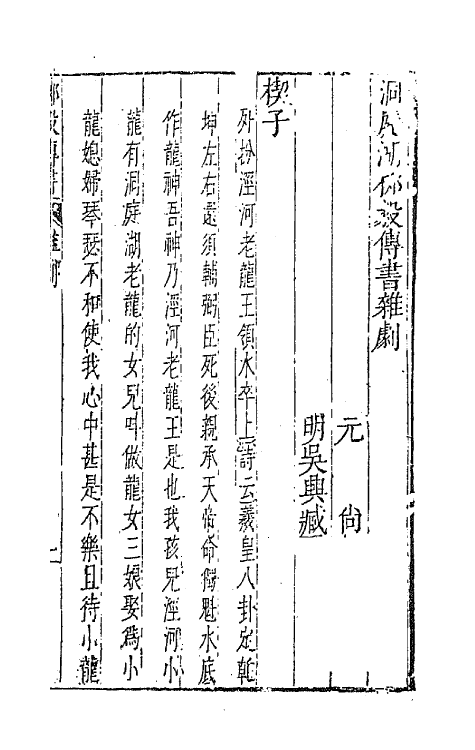 洞庭湖柳毅傳書雜劇
元　尚
明吳興臧
楔子
外扮涇河老龍王領水卒上詩云羲皇八卦定乾
坤左右還須輔弼臣死後親承天帝命獨魁水底
作龍神吾神乃涇河老龍王是也我孩兒涇河小
龍有洞庭湖老龍的女兒呌做龍女三娘娶爲小
龍媳婦琴瑟不和使我心中甚是不樂且待小龍
柳毅傳書　雜劇　一